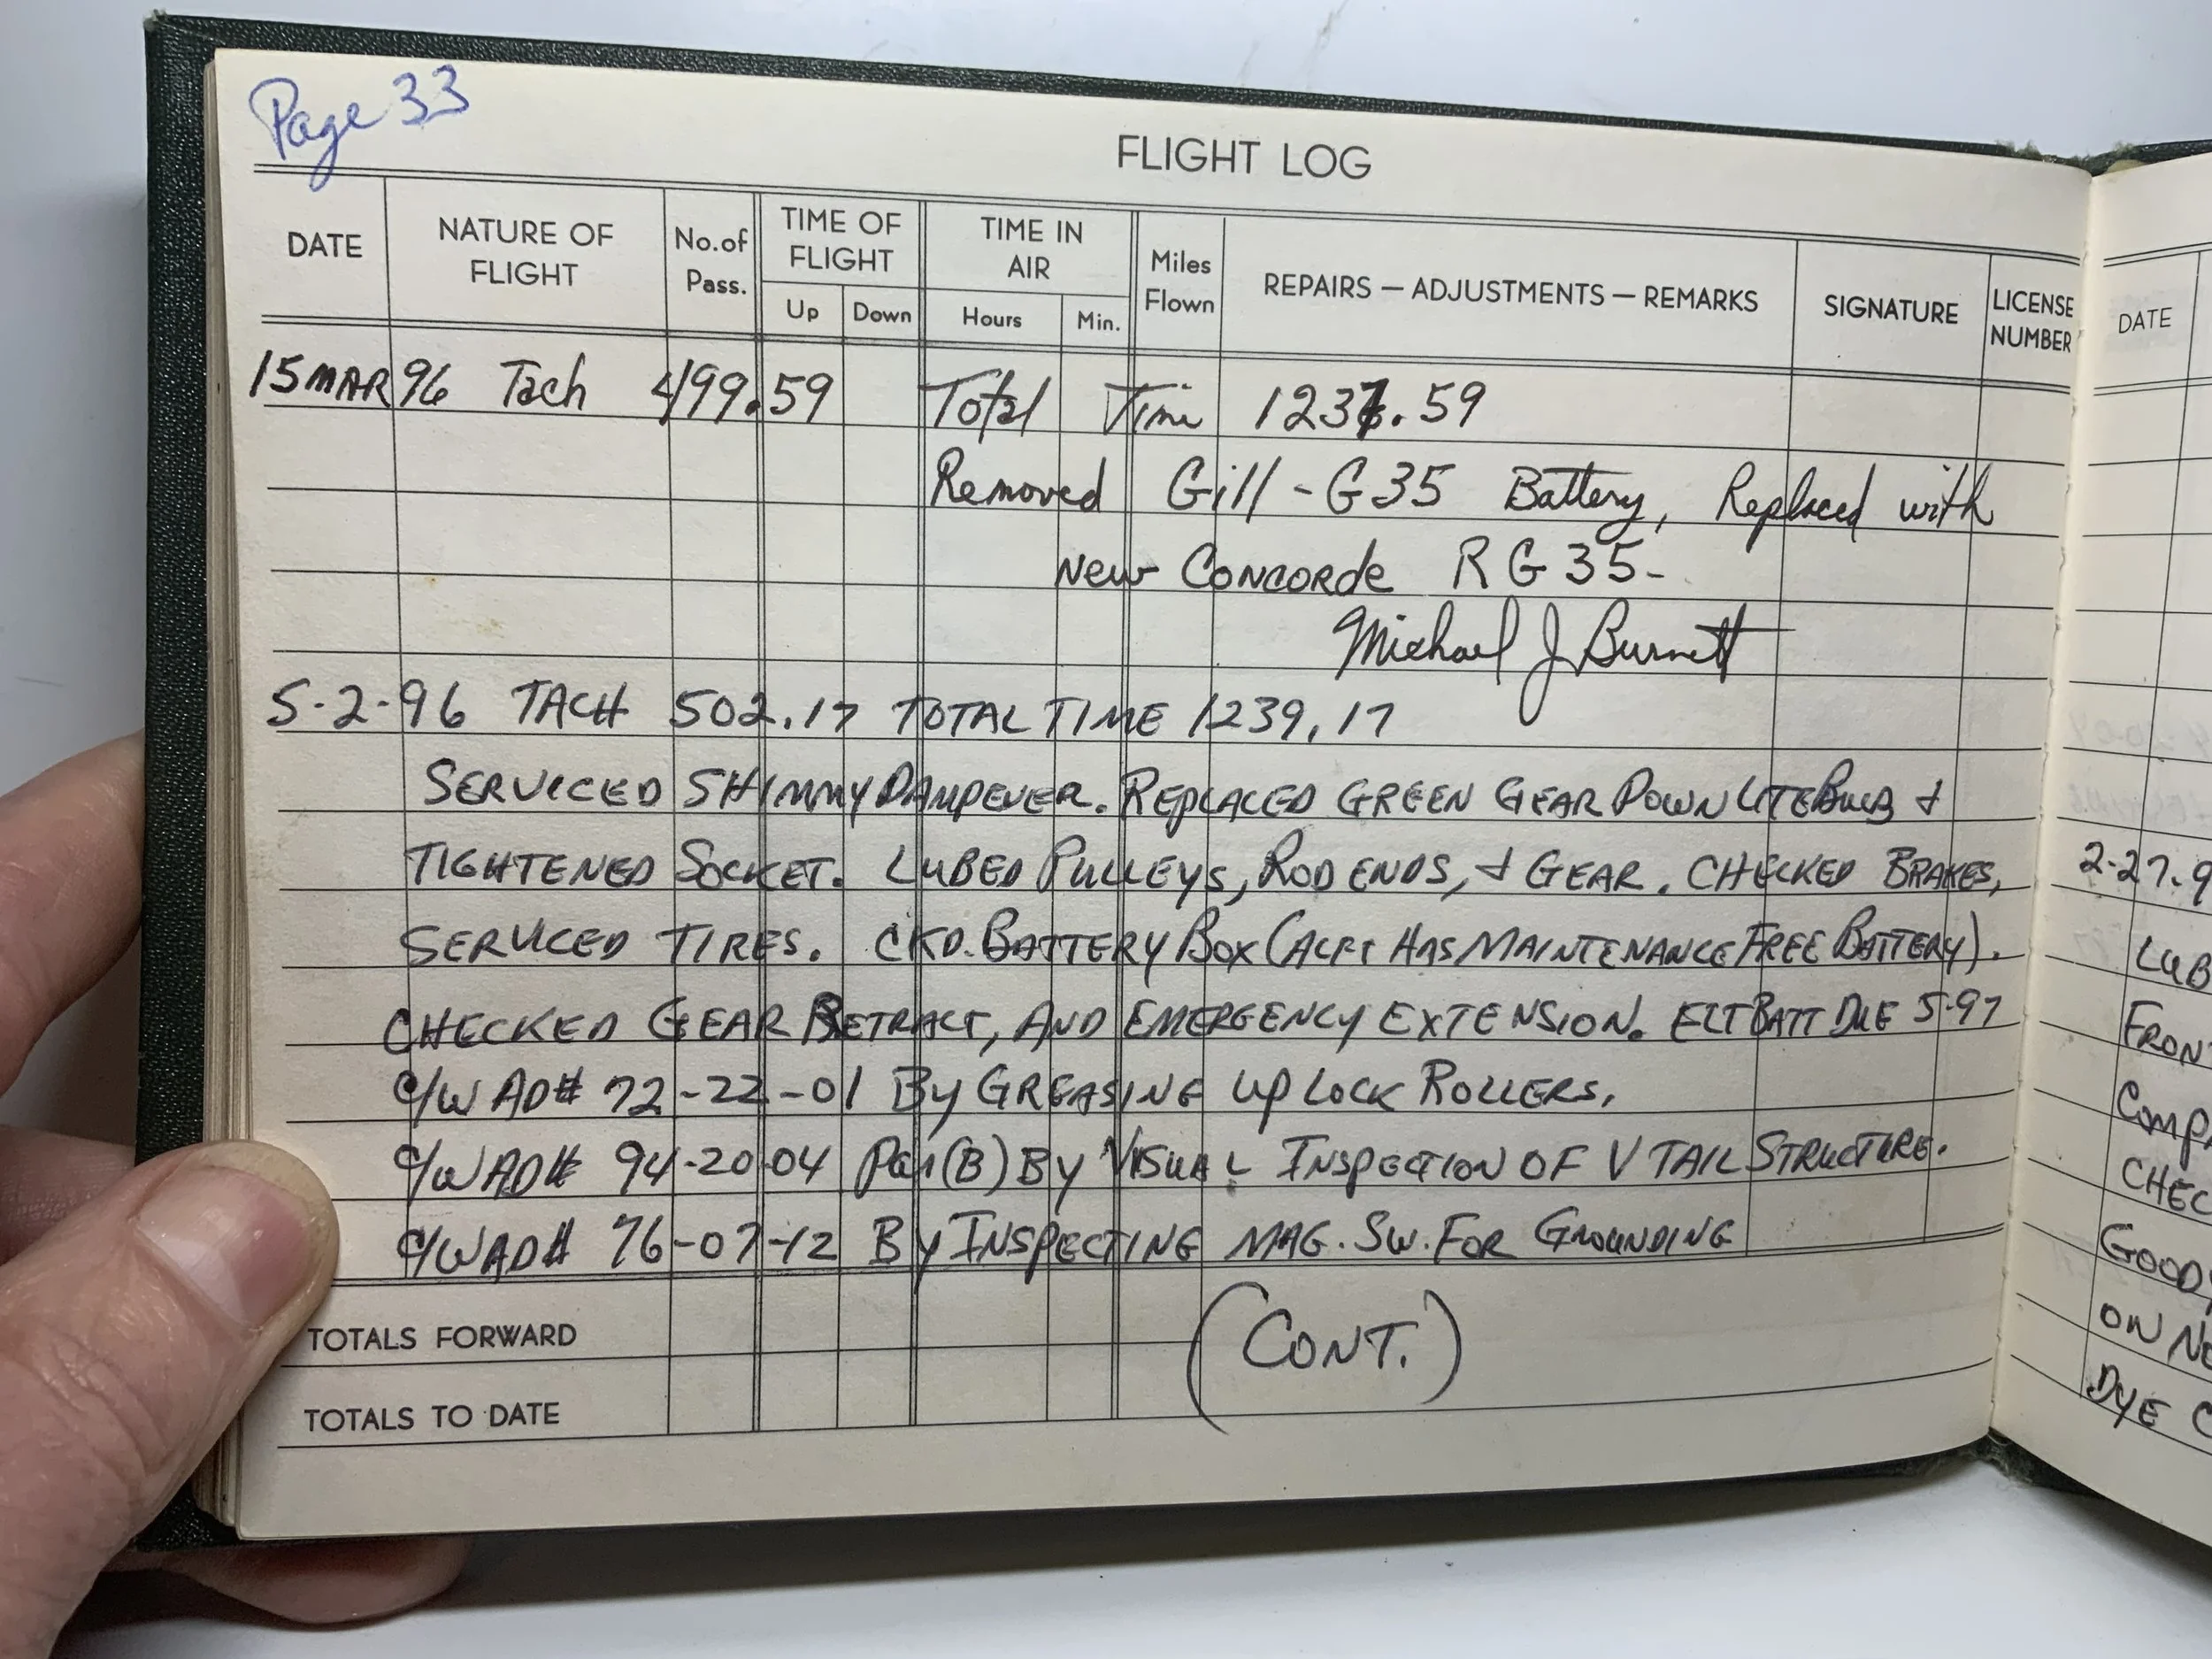 Page 33
FLIGHT LOG
DATE NATURE OF FLIGHT No. of Pass. TIME OF FLIGHT Up Down TIME IN AIR Hours Min. Miles Flown REPAIRS — ADJUSTMENTS — REMARKS SIGNATURE LICENSE NUMBER
15 MAR 96 Tach 499.59 Total Time 1237.59
Removed Gill-G35 Battery, Replaced with
New Concorde RG35-
Michael J Burnett
5-2-96 TACH 502.17 TOTAL TIME 1239.17
SERVICED SHIMMY DAMPENER. REPLACED GREEN GEAR DOWN LITE BULB &
TIGHTENED SOCKET. LUBED PULLEYS, ROD ENDS, & GEAR. CHECKED BRAKES,
SERVICED TIRES. CKD. BATTERY BOX (ACFT HAS MAINTENANCE FREE BATTERY).
CHECKED GEAR RETRACT, AND EMERGENCY EXTENSION. ELT BATT DUE 5-97
C/W AD# 72-22-01 BY GREASING UP LOCK ROLLERS.
C/W AD# 94-20-04 Par(B) BY VISUAL INSPECTION OF V TAIL STRUCTURE.
C/W AD# 76-07-12 BY INSPECTING MAG. SW. FOR GROUNDING
TOTALS FORWARD
(CONT.)
TOTALS TO DATE
DATE
2-27-9
LUB
FRON
COMP
CHEC
GOODY
ON NE
DYE C